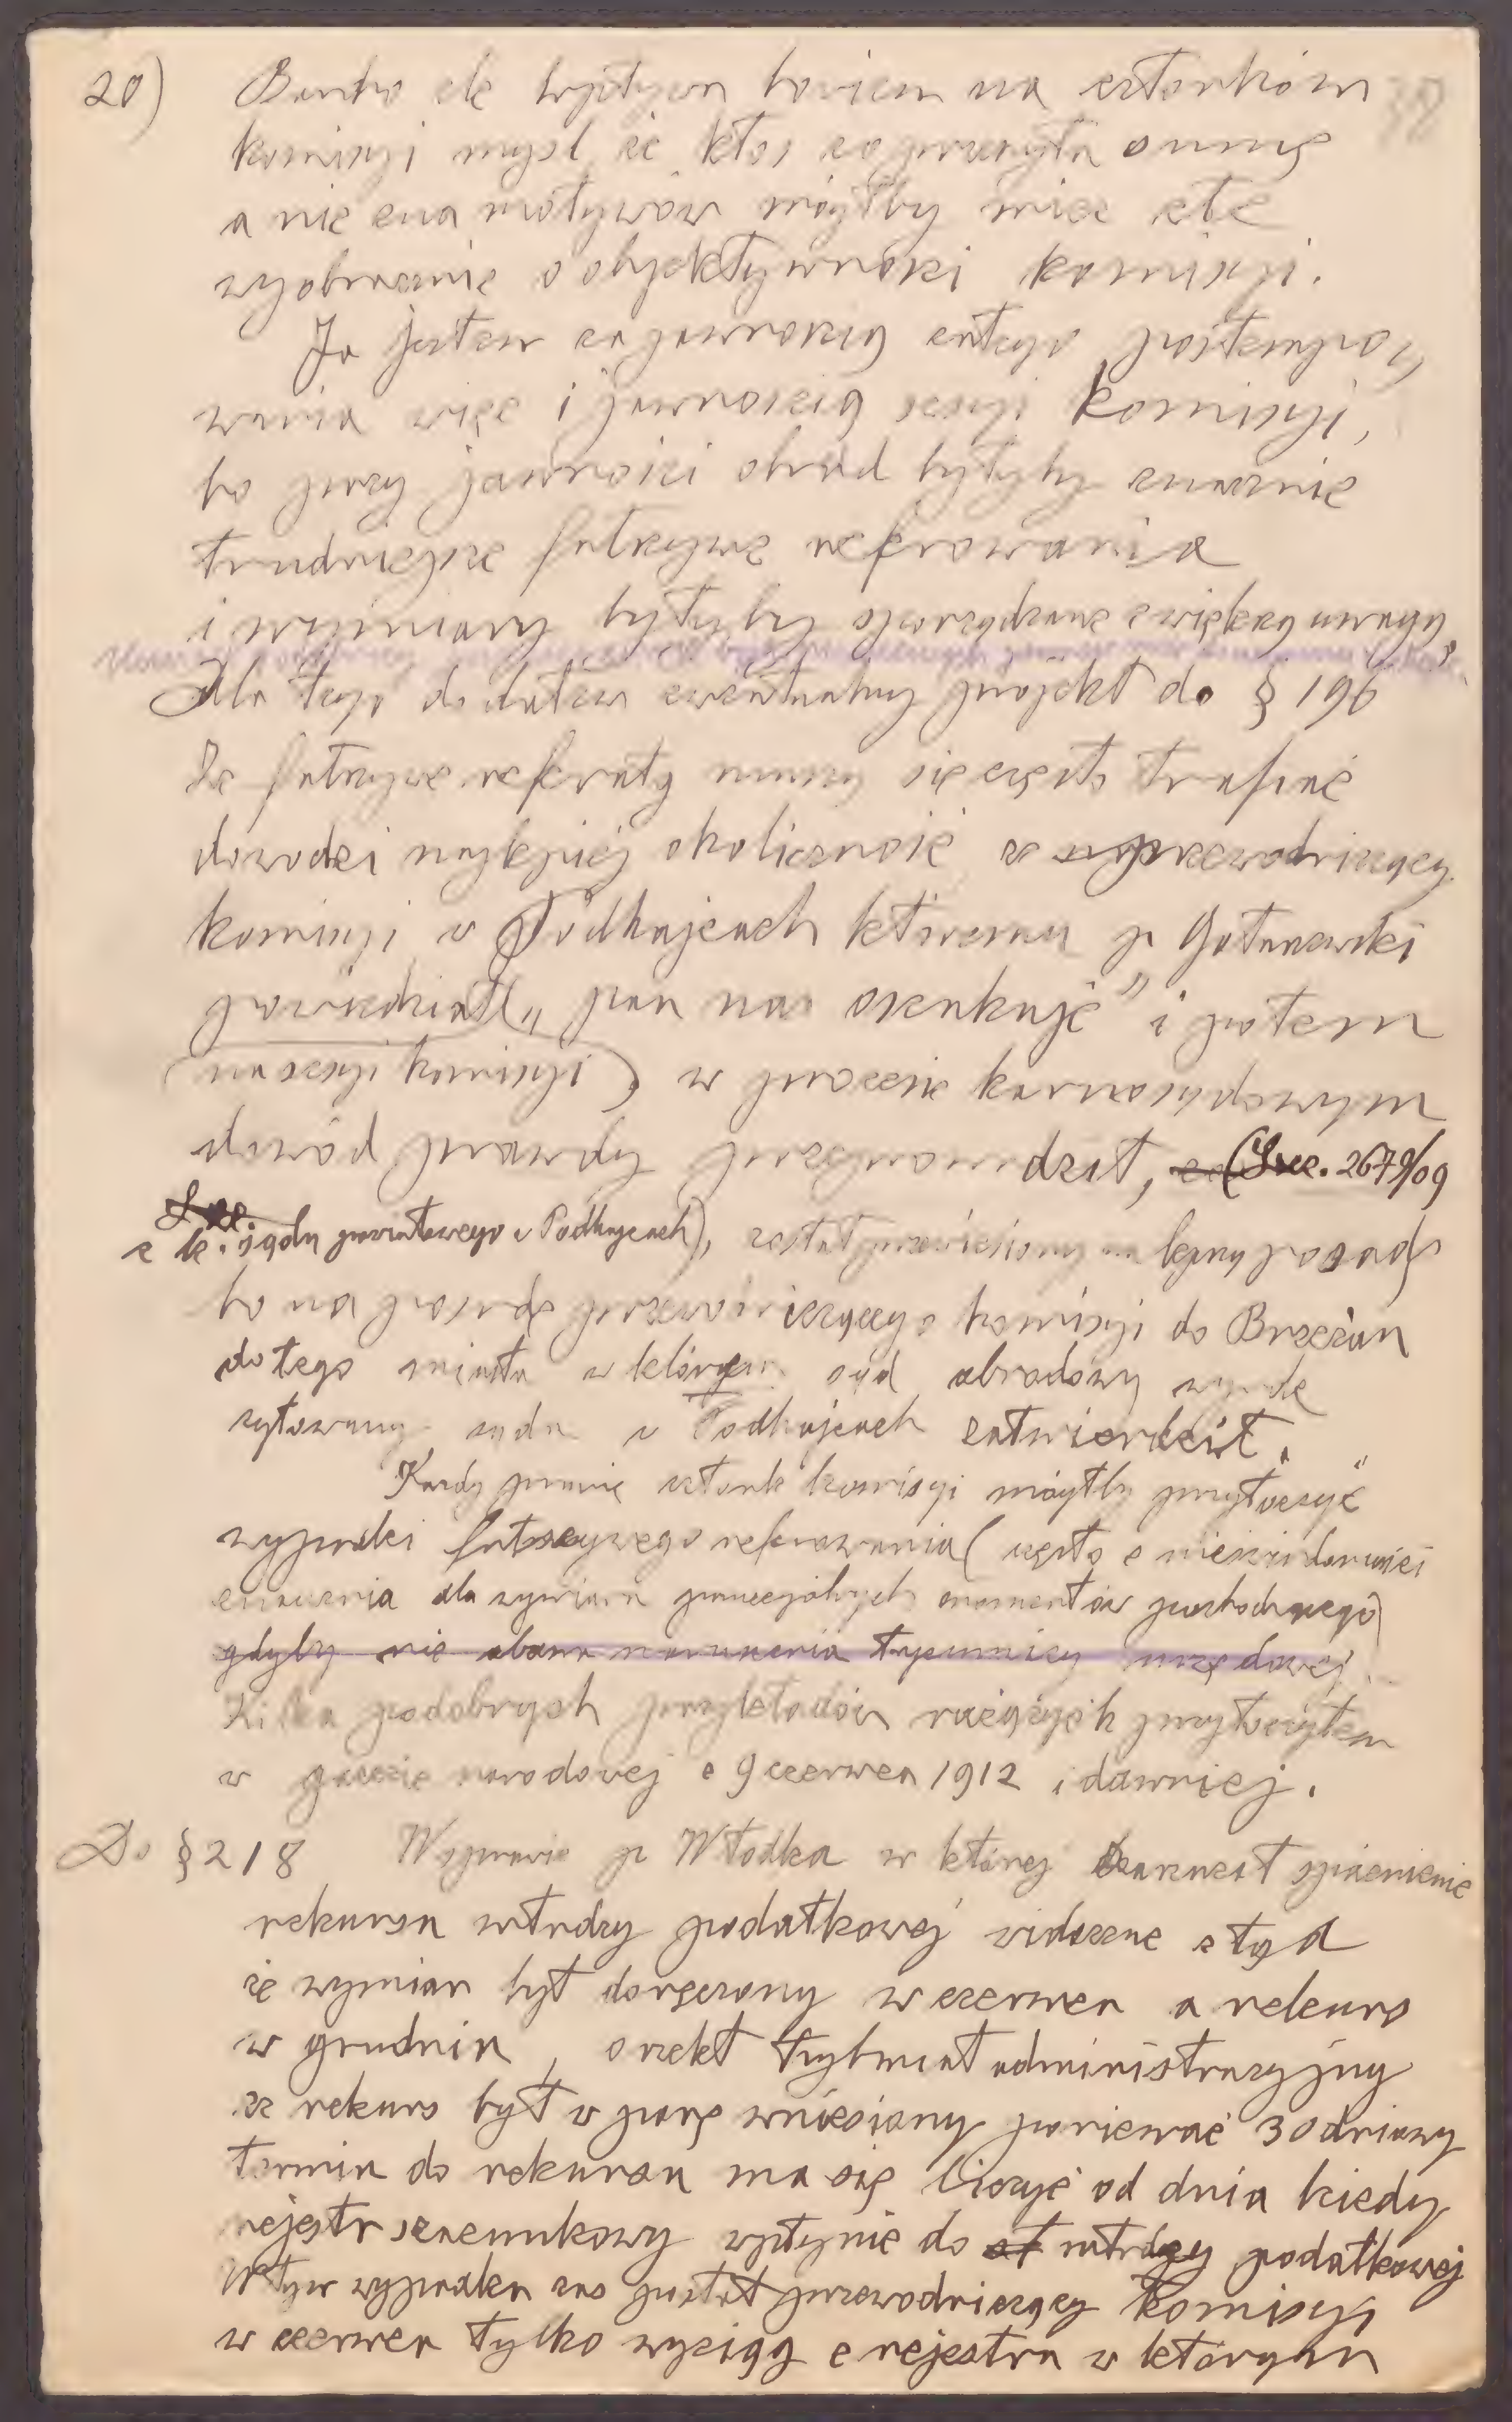 20) Bardzo źle wpływa bowiem na członków 38
komisyi myśl że ktoś co przeczyta ocenę
a nie zna motywów mógłby mieć złe
wyobrażenie o objektywności komisyi.
Ja jestem za jawnością całego postępo-
wania więc i jawnością sesyi komisyi,
bo przy jawności obrad byłyby znacznie
trudniejsze fałszywe referowania
i wymiary byłyby sporządzane z większą uwagą,
Dla tego dodałem ewentualny projekt do § 196
Że fałszywe referaty muszą się często trafiać
dowodzi najlepiej okoliczność że przewodniczący
komisyi w Podhajcach któremu p
powiedział „pan nas oszukuje” i potem
(na sesyi komisyi) w procesie karnosądowym
dowód prawdy przeprowadził, (Lcz. 2679/09
c k. sądu powiatowego w Podhajcach), został przeniesiony na lepszą posadę
bo na posadę przewodniczącego komisyi do Brzeżan
do tego miasta w którym sąd obwodowy wyrok
cytowany sądu w Podhajcach zatwierdził.
Każdy prawie członek komisyi mógłby przytoczyć
wypadki fałszywego referowania (często z nieświadomości
znaczenia dla wymiaru poszczególnych momentów pochodzącego)
gdyby nie obawa naruszenia tajemnicy urzędowej.
Kilka podobnych przykładów rażących przytoczyłem
w gazecie narodowej z 9 czerwca 1912 i dawniej.
Do § 218 W sprawie p Włodka w której zarzucał spóźnienie
rekursu władzy podatkowej widoczne stąd
że wymiar był doręczony w czerwcu a rekurs
w grudniu, orzekł trybunał administracyjny
że rekurs był w porę wniesiony ponieważ 30 dniowy
termin do rekursu ma się liczyć od dnia kiedy
rejestr szacunkowy wpłynie do władzy podatkowej
W tym wypadku zaś posłał przewodniczący komisyi
w czerwcu tylko wyciąg z rejestru w którym